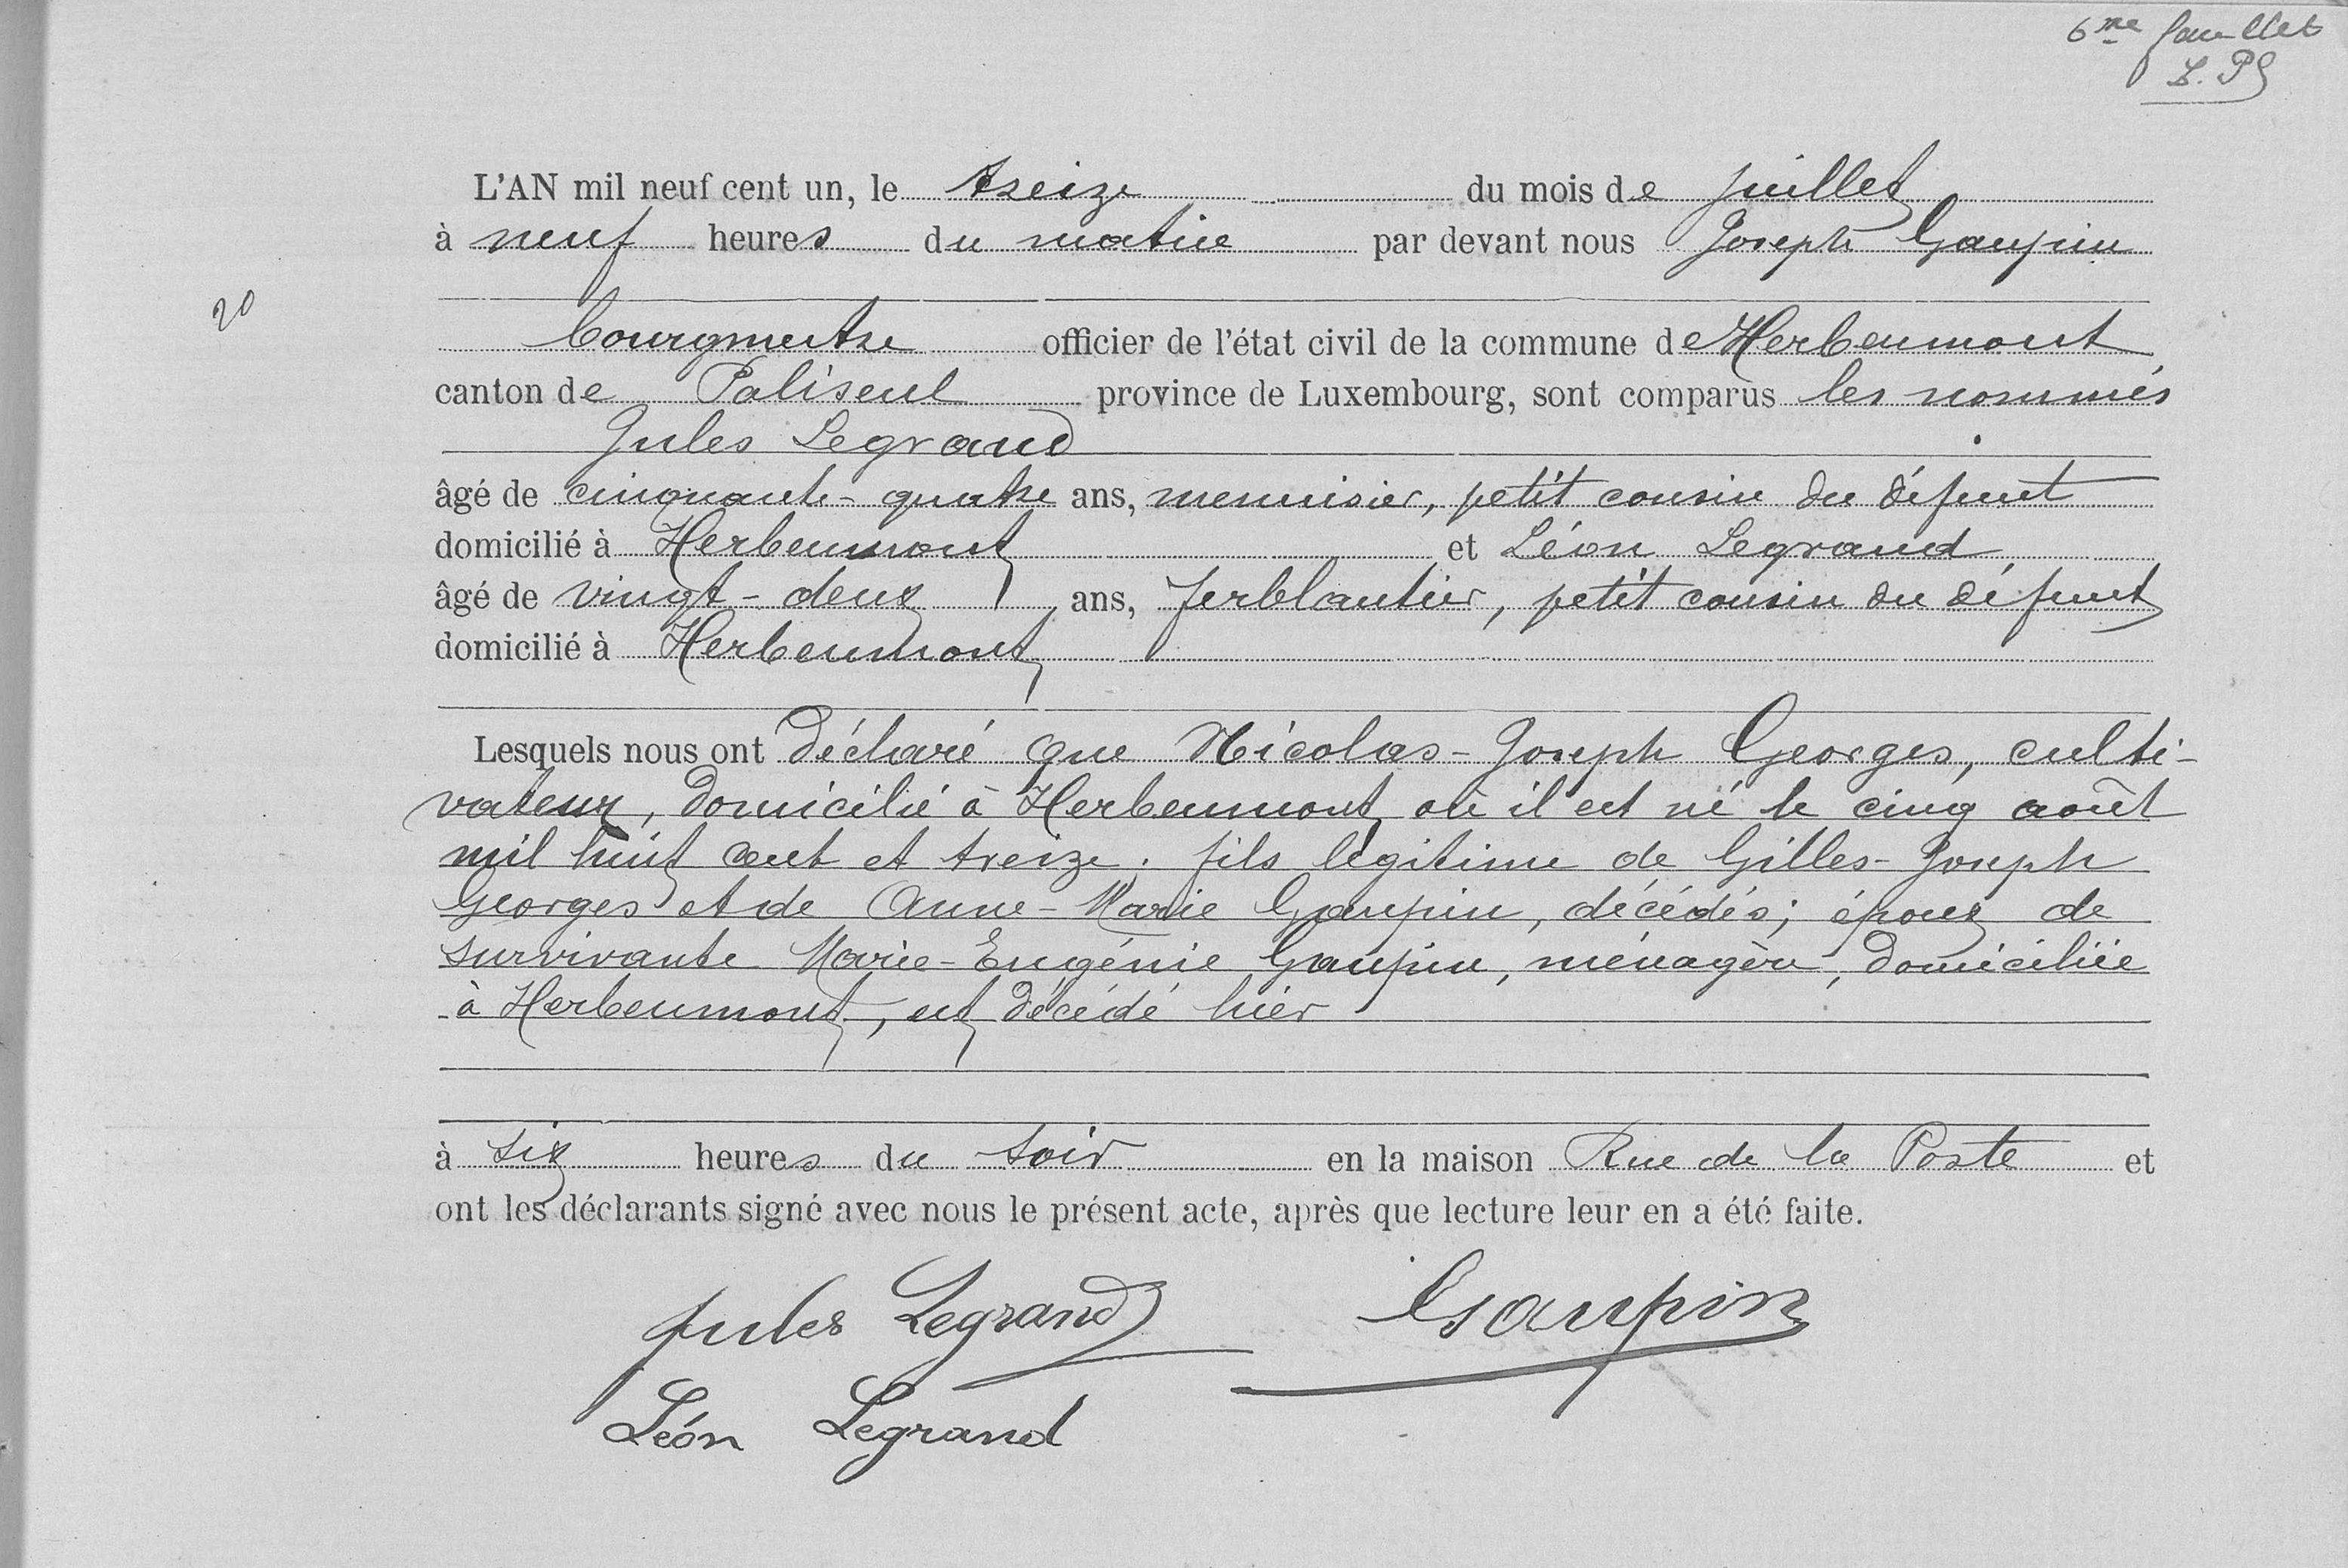 6me feuillet
20
L'AN mil neuf cent un, le treize du mois de juillet
à neuf heures du matin par devant nous Joseph Gaupin
bourgmestre officier de l'état civil de la commune de Herbeumont
canton de Paliseul province de Luxembourg, sont comparus les nommés
Jules Legrand
âgé de cinquante-quatre ans, menuisier, petit cousin du défunt
domicilié à Herbeumont et Léon Legrand,
âgé de vingt-deux ans, ferblantier, petit cousin du défunt
domicilié à Herbeumont
Lesquels nous ont déclaré que Nicolas-Joseph Georges, culti-
vateur, domicilié à Herbeumont où il est né le cinq août
mil huit cent et treize. fils légitime de Gilles-Joseph
Georges et de Anne-Marie Gaupin, décédés; époux de
survivante Marie-Eugénie Gaupin, ménagère, domiciliée
à Herbeumont, est décédé hier
à six heures du soir en la maison Rue de la Poste et
ont les déclarants signé avec nous le présent acte, après que lecture leur en a été faite.
Jules Legrand Gaupin
Léon Legrand